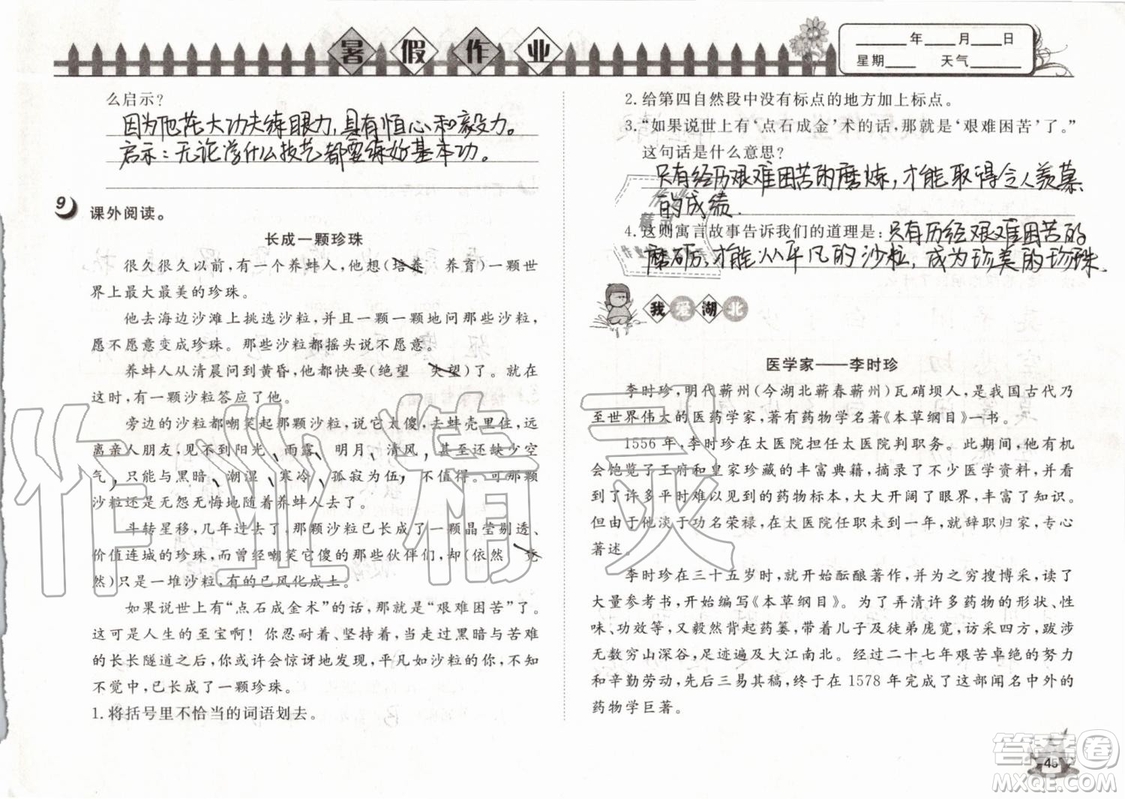 暑假作业
____年____月____日
星期____ 天气____
么启示?
因为他花大功夫练眼力,具有恒心和毅力。
启示:无论学什么技艺都要练好基本功。
9 课外阅读。
长成一颗珍珠
很久很久以前,有一个养蚌人,他想(培养 养育)一颗世
界上最大最美的珍珠。
他去海边沙滩上挑选沙粒,并且一颗一颗地问那些沙粒,
愿不愿意变成珍珠。那些沙粒都摇头说不愿意。
养蚌人从清晨问到黄昏,他都快要(绝望 失望)了。就
在这时,有一颗沙粒答应了他。
旁边的沙粒都嘲笑起那颗沙粒,说它太傻,去蚌壳里住,远
离亲人朋友,见不到阳光、雨露、明月、清风,甚至还缺少空
气,只能与黑暗、潮湿、寒冷、孤寂为伍,不值得。可那颗
沙粒还是无怨无悔地随着养蚌人去了。
斗转星移,几年过去了,那颗沙粒已长成了一颗晶莹剔透、
价值连城的珍珠,而曾经嘲笑它傻的那些伙伴们,却(依然 
)只是一堆沙粒,有的已风化成土。
如果说世上有“点石成金术”的话,那就是“艰难困苦”了。
这可是人生的至宝啊!你忍耐着、坚持着,当走过黑暗与苦难
的长长隧道之后,你或许会惊讶地发现,平凡如沙粒的你,不知
不觉中,已长成了一颗珍珠。
1.将括号里不恰当的词语划去。
2.给第四自然段中没有标点的地方加上标点。
3.“如果说世上有‘点石成金’术的话,那就是‘艰难困苦’了。”
这句话是什么意思?
只有经历艰难困苦的磨炼,才能取得令人羡慕
的成绩.
4.这则寓言故事告诉我们的道理是:只有历经艰难困苦的
磨砺,才能从平凡的沙粒,成为珍美的珍珠.
我爱湖北
医学家——李时珍
李时珍,明代蕲州(今湖北蕲春蕲州)瓦硝坝人,是我国古代乃
至世界伟大的医药学家,著有药物学名著《本草纲目》一书。
1556年,李时珍在太医院担任太医院判职务。此期间,他有机
会饱览了王府和皇家珍藏的丰富典籍,摘录了不少医学资料,并看
到了许多平时难以见到的药物标本,大大开阔了眼界,丰富了知识。
但由于他淡于功名荣禄,在太医院任职未到一年,就辞职归家,专心
著述。
李时珍在三十五岁时,已开始酝酿著作,并为之穷搜博采,读了
大量参考书,开始编写《本草纲目》。为了弄清许多药物的形状、性
味、功效等,又毅然背起药篓,带着儿子及徒弟庞宽,访采四方,足迹涉
无数穷山深谷,足迹遍及大江南北。经过二十七年艰苦卓绝的努力
和辛勤劳动,并先后三易其稿,终于在1578年完成了这部闻名中外的
药物学巨著。
45
作业精灵
答案卷
MXQE.COM